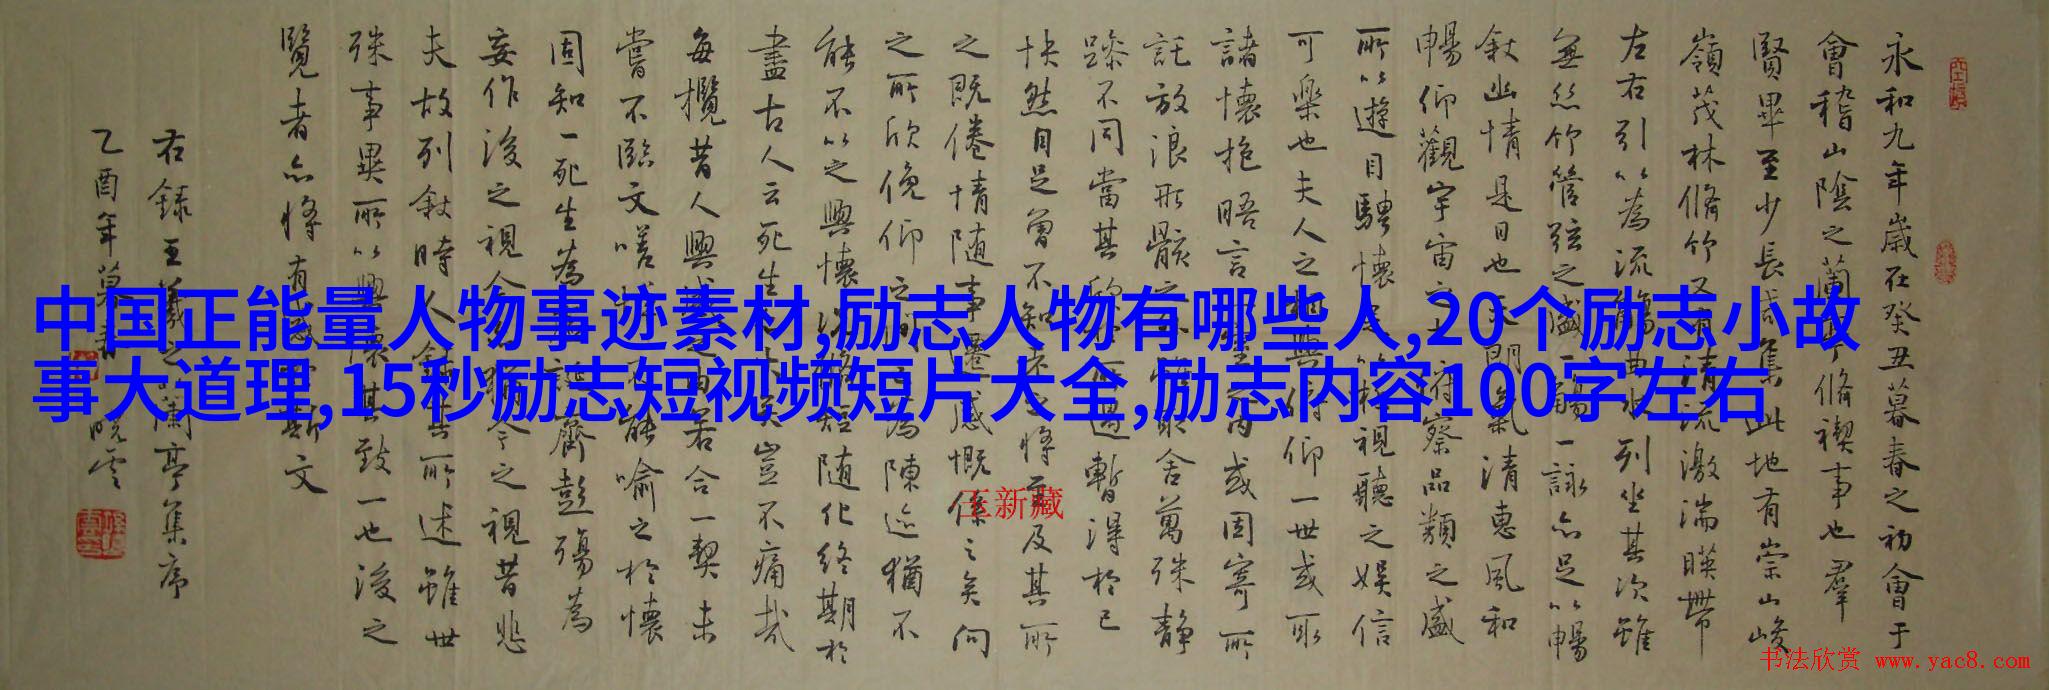 永和九年歲在癸丑暮春之初會于
會稽山陰之蘭亭脩禊事也羣
賢畢至少長咸集此地有崇山峻
嶺茂林脩竹又有清流激湍暎帶
左右引以為流觴曲水列坐其次雖
無絲竹管弦之盛一觴一詠亦足以暢
敘幽情是日也天朗氣清惠風和
暢仰觀宇宙之大府察品類之盛
所以遊目騁懷足以極視聽之娛信
可樂也夫人之相與俯仰一世或取
諸懷抱晤言一室內或因寄所
託放浪形骸之外雖取舍萬殊静
躁不同當其欣於所遇暫得於己
快然自足曾不知老之將至及其所
之既倦情随事遷感慨係之矣向
之所欣俛仰之間以為陳迹猶不
能不以之興懷況脩短随化終期於
盡古人云死生亦大矣豈不痛哉
每攬昔人興感之由若合一契未
嘗不臨文嗟悼不能喻之於懷
固知一死生為虛誕齊彭殤為
妄作後之視今亦猶今之視昔悲
夫故列敘時人錄其所述雖世
殊事異所以興懷其致一也後之
覽者亦將有感於斯文
右錄王羲之蘭亭集序
乙酉年暮春曉雲
中国正能量人物事迹素材,励志人物有哪些人,20个励志小故
事大道理,15秒励志短视频短片大全,励志内容100字左右
王新藏
书法欣赏 www.yac8.com